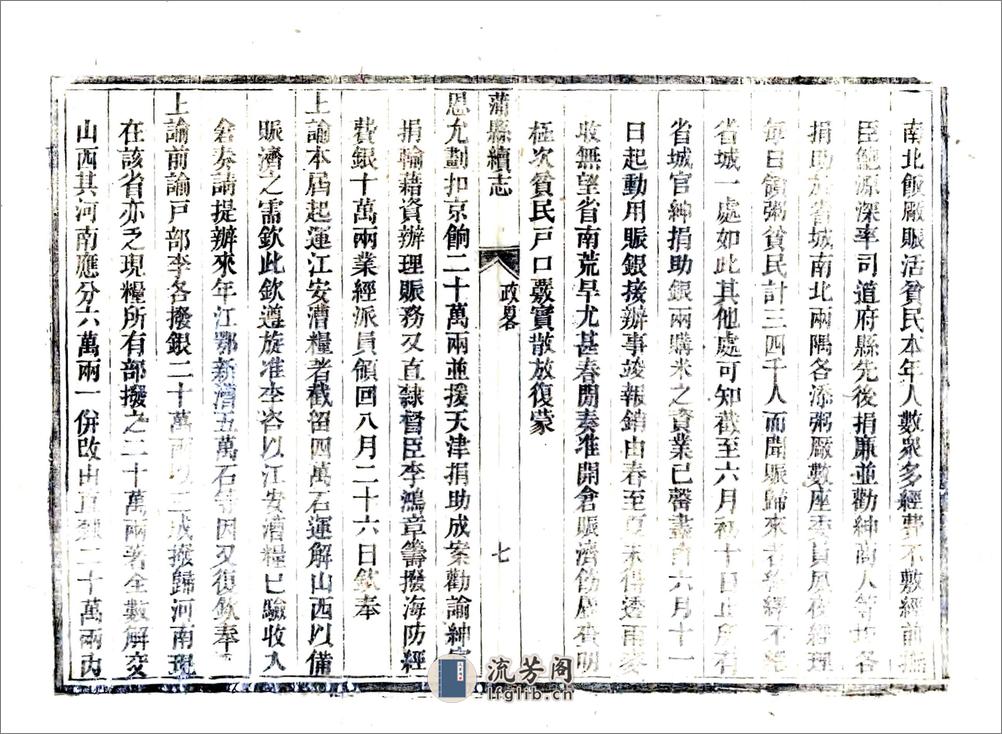 南北飯廠賑活貧民本年人數眾多經費不敷經前撫
臣鮑源深率司道府縣先後捐廉並勸紳商人等均各
捐助於省城南北兩隅各添粥廠數座委員夙夜經理
每日領粥貧民計三四千人而聞賑歸來者絡繹不絕
省城一處如此其他處可知截至六月初十日止所有
省城官紳捐助銀兩購米之資業已罄盡自六月十一
日起動用賑銀接辦事竣報銷由春至夏未得透雨麥
收無望省南荒旱尤甚春間奏准開倉賑濟飭屬查明
極次貧民戶口覈實散放復蒙
蒲縣續志
政畧
七
恩允劃扣京餉二十萬兩並援天津捐助成案勸諭紳富
捐輸藉資辦理賑務又直隸督臣李鴻章籌撥海防經
費銀十萬兩業經派員領回八月二十六日欽奉
上諭本屆起運江安漕糧著截留四萬石運解山西以備
賑濟之需欽此欽遵旋准李咨以江安漕糧已驗收入
倉奏請提辦來年江鄂新漕五萬石等因又復欽奉
上諭前諭戶部李各撥銀二十萬兩以二成撥歸河南現
在該省亦乏現糧所有部撥之二十萬兩著全數解交
山西其河南應分六萬兩一併改由直隸二十萬兩內
流芳阁
lfglib.cn